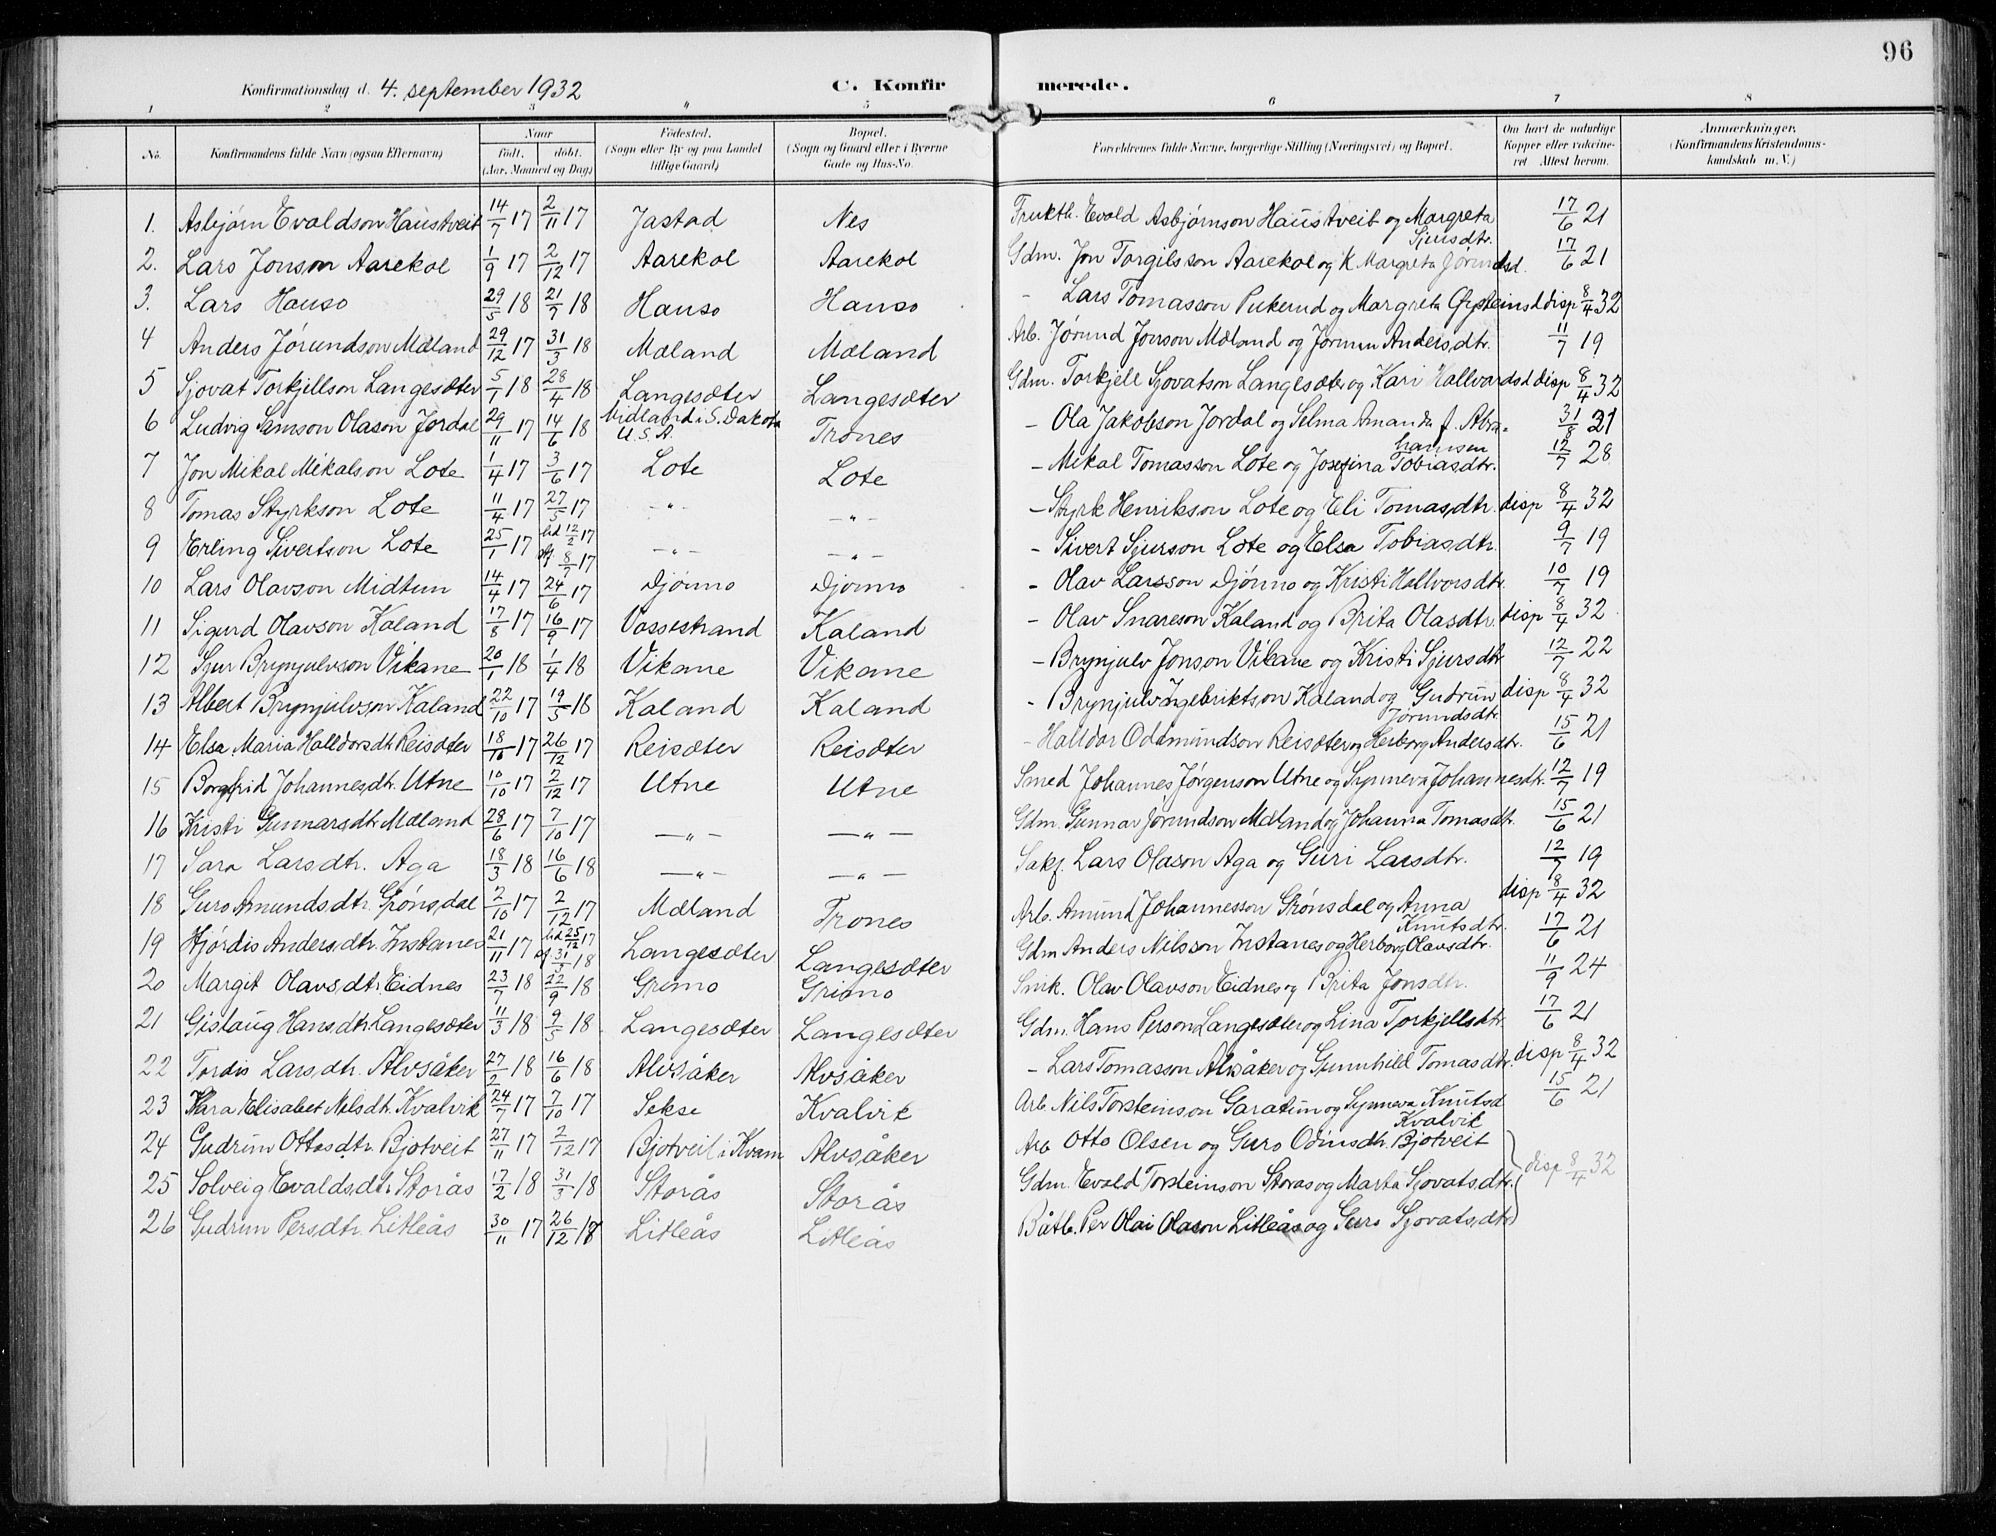 96
Konfirmationsdag d. 4. september 1932 C. Konfirmerede.
1 2 3 4 5 6 7 8
No. Konfirmandens fulde Navn (ogsaa Efternavn) Naar født. døbt. (Aar, Maaned og Dag) Fødested. (Sogn eller By og paa Landet tillige Gaard) Bopæl. (Sogn og Gaard eller i Byerne Gade og Hus-No. Forældrenes fulde Navne, borgerlige Stilling (Næringsvei) og Bopæl. Om havt de naturlige Kopper eller vakcineret Attest herom. Anmærkninger. (Konfirmandens Kristendomskundskab m. V.)
1. Asbjørn Evaldson Haustveit 14/7 17 2/11 17 Jastad Nes Frukth. Evald Asbjørnson Haustveit og Margreta Sjursdtr. 17/6 21
2. Lars Jonson Aarekol 1/9 17 2/12 17 Aarekol Aarekol Gdm. Jon Torgilsson Aarekol og K. Margreta Jørundsd. 17/6 21
3. Lars Hauso 29/5 18 21/7 18 Hauso Hauso - Lars Tomasson Pukerud og Margreta Øysteinsd disp 8/4 32
4 Anders Jørundson Mæland 29/12 17 31/3 18 Mæland Mæland Arb. Jørund Jonson Mæland og Jørmun Andersdtr. 11/7 19
5 Sjovat Torkjellson Langesæter 5/1 18 28/4 18 Langesæter Langesæter Gdm. Torkjell Sjovatson Langesæter og Kari Hallvardsd disp 8/4 32
6 Ludvig Samson Olason Jordal 29/11 17 14/6 18 Midland i S. Dakota U.S.A. Trones - Ola Jakobson Jordal og Selma Amanda f. Abrahamsen 31/8 21
7 Jon Mikal Mikalson Lote 1/4 17 3/6 17 Lote Lote - Mikal Tomasson Lote og Josefina Tobiasdtr. 12/7 28
8 Tomas Styrkson Lote 11/4 17 27/5 17 -"- -"- - Styrk Henrikson Lote og Eli Tomasdtr. disp 8/4 32
9 Erling Sivertson Lote 25/1 17 hd 12/2 17 8/7 17 -"- -"- - Sivert Sjurson Lote og Elsa Tobiasdtr. 9/7 19
10 Lars Olavson Midtun 14/4 17 24/6 17 Djønno Djønno - Olav Larsson Djønno og Kristi Hallvorsdtr. 10/7 19
11 Sigurd Olavson Kaland 17/8 17 16/9 17 Vossestrand Kaland - Olav Snareson Kaland og Brita Olasdtr. disp 8/4 32
12 Sjur Brynjulvson Vikane 20/1 18 1/4 18 Vikane Vikane - Brynjulv Jonson Vikane og Kristi Sjursdtr 12/7 22
13 Albert Brynjulvson Kaland 22/10 17 19/5 18 Kaland Kaland - Brynjulv Ingebriktson Kaland og Gudrun Jørundsdtr. disp 8/4 32
14 Elsa Maria Halldorsdt Reisæter 18/10 17 26/12 17 Reisæter Reisæter - Halldor Oddmundson Reisæter og Herborg Andersdtr. 15/6 21
15 Borghid Johannesdtr. Utne 10/10 17 2/12 17 Utne Utne Smed Johannes Jørgenson Utne og Synneva Johannesdtr. 12/7 19
16 Kristi Gunnarsdtr Mæland 28/6 17 7/10 17 -"- -"- Gdm. Gunnar Jørundson Mæland og Johanna Tomasdtr. 15/6 21
17 Sara Larsdtr. Aga 18/3 18 16/6 18 -"- -"- Sakf. Lars Olason Aga og Guri Larsdtr. 12/7 19
18 Guro Amundsdtr. Grønsdal 2/10 17 2/12 17 Mæland Trones Arb. Amund Johannesson Grønsdal og Anna Knutsdtr. disp 8/4 32
19 Hjørdis Andersdtr. Instanes 21/11 17 hd 25/12 17 31/3 18 Langesæter Langesæter Gdm Anders Nilsson Instanes og Herborg Olavsdtr. 17/6 21
20 Margit Olavsdtr. Eidnes 23/7 18 22/9 18 Grimo Grimo Snik. Olav Olavson Eidnes og Brita Jonsdtr. 11/9 24
21 Gislaug Hansdtr. Langesæter 11/3 18 9/5 18 Langesæter Langesæter Gdm. Hans Person Langesæter og Lina Torkjellsdtr 17/6 21
22 Tordis Larsdtr. Alvsåker 27/2 18 16/6 18 Alvsåker Alvsåker - Lars Tomasson Alvsåker og Gunnhild Tomasdtr. disp 8/4 32
23 Kara Elisabet Nilsdtr. Kvalvik 24/7 17 7/10 17 Sekse Kvalvik Arb. Nils Torsteinson Garatun og Synneva Knutsd Kvalvik 15/6 21
24 Gudrun Ottosdtr. Bjotveit 27/11 17 2/12 17 Bjotveit i Kvam Alvsåker Arb Otto Olsen og Guro Odinsdtr. Bjotveit
25 Solveig Evaldsdtr. Storås 17/2 18 31/3 18 Storås Storås Gdm. Evald Torsteinson Storås og Marta Sjovatsdtr. disp 8/4 32
26 Gudrun Persdtr. Litleås 30/11 17 26/12 17 Litleås Litleås Båtb. Per Olai Olason Litleås og Guro Sjovatsdtr